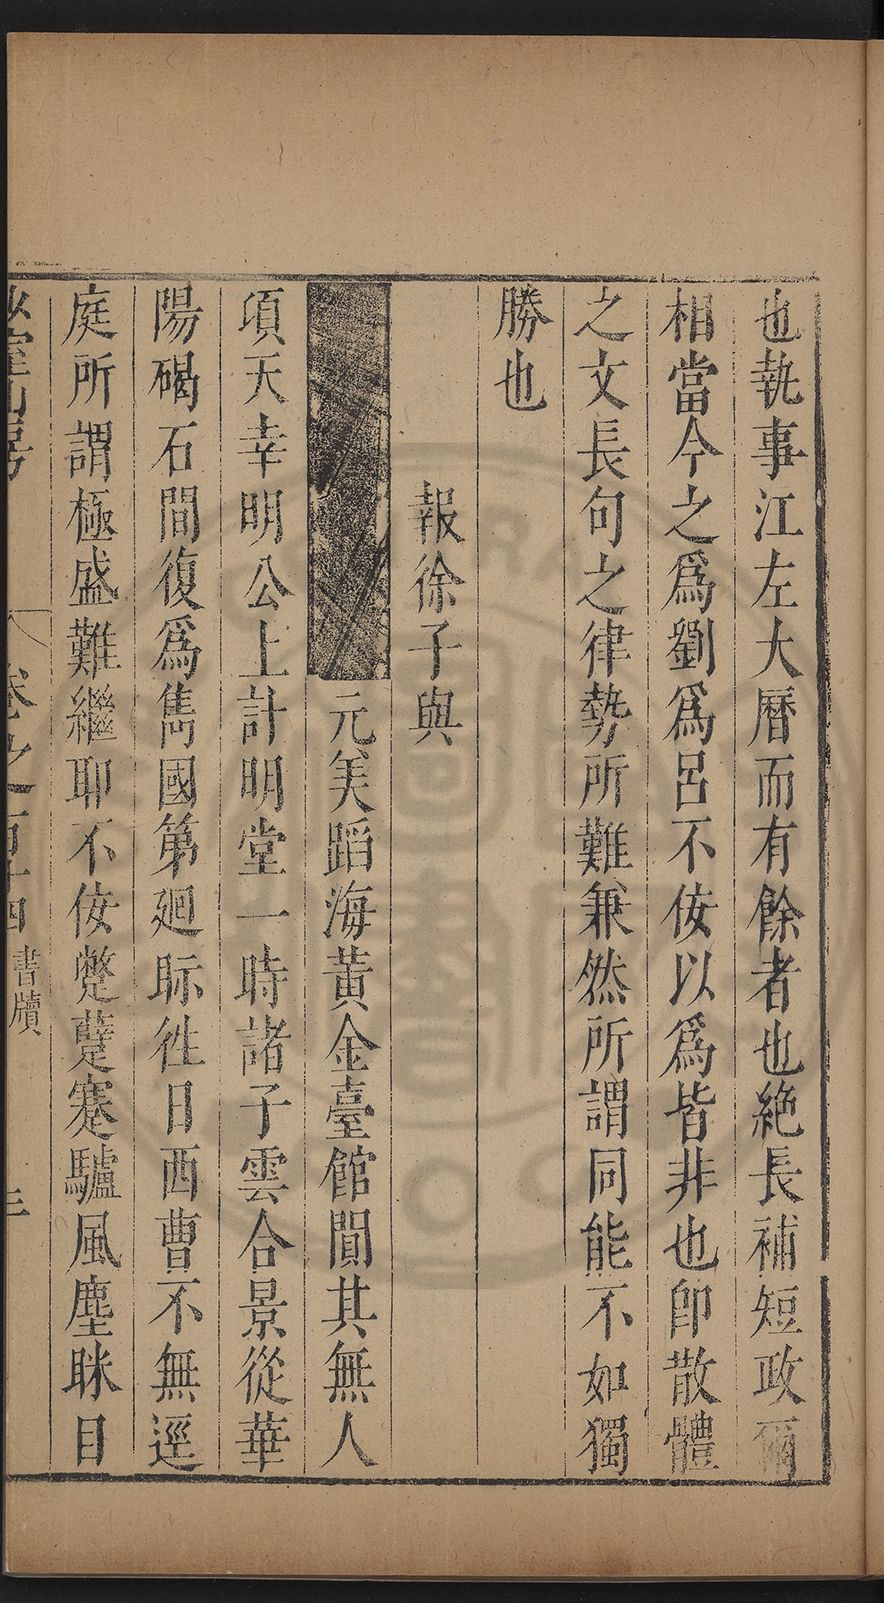 也執事江左大曆而有餘者也絶長補短政爾
相當今之爲劉爲呂不佞以爲皆非也卽散體
之文長句之律勢所難兼然所謂同能不如獨
勝也
報徐子與
元美蹈海黃金臺館閴其無人
項天幸明公上計明堂一時諸子雲合景從華
陽碣石間復爲雋國第廻眎徃日西曹不無逕
庭所謂極盛難繼耶不佞蹩躠蹇驢風塵眯目
山房
卷之百十四 書牘
三